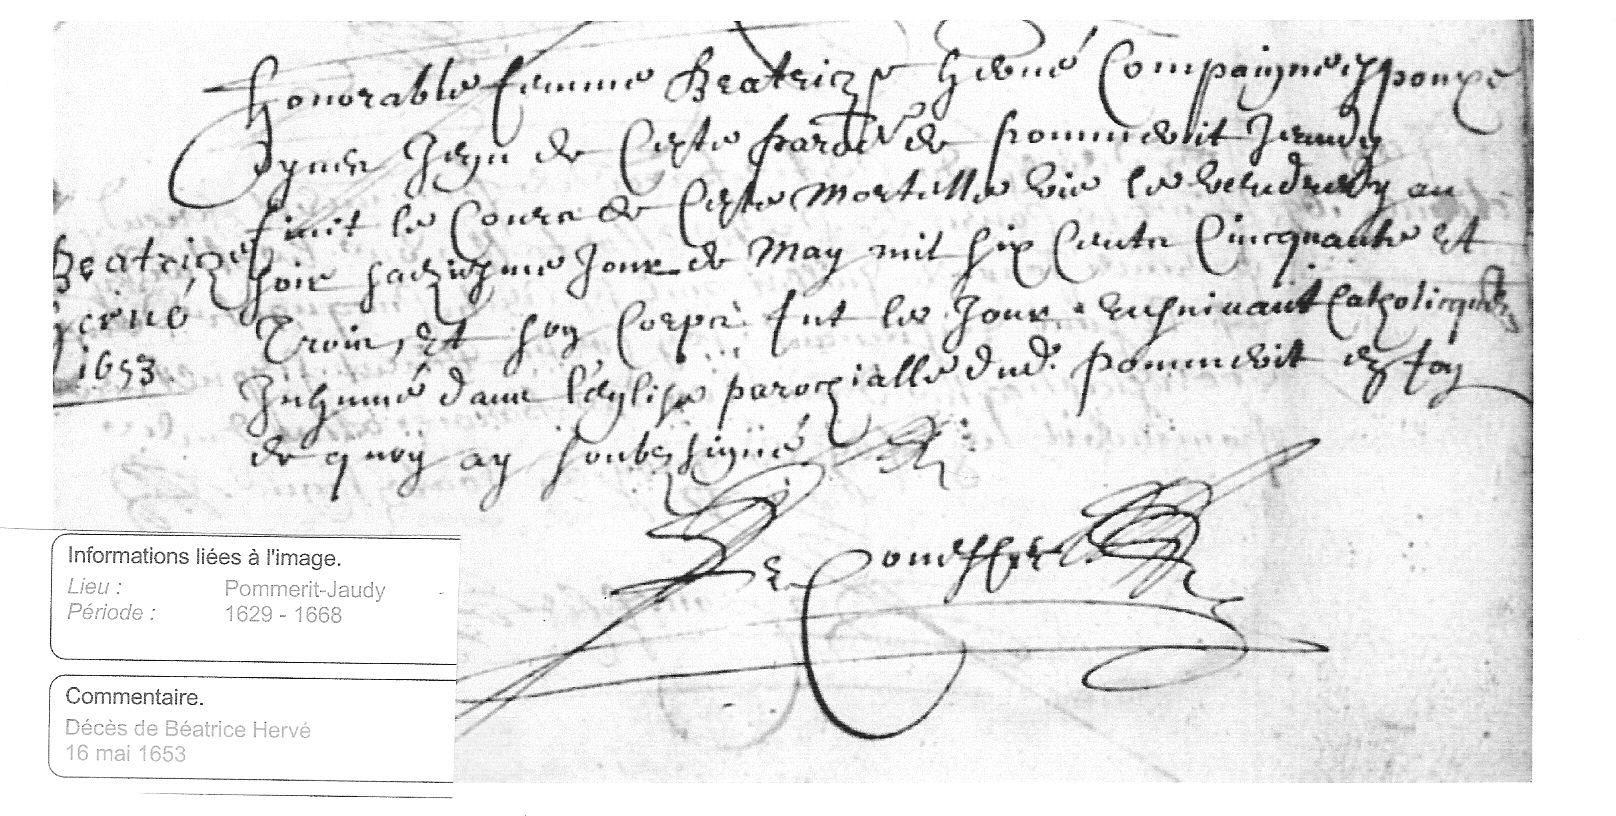 Honorable femme Beatrice Hervé Compaigne espouze
de Ceste paroé de Pommerit Jeaudy
finit le Cours de Ceste Mortelle vie le vendredy au
soir saeziesme Jour de May mil six Cents Cincquante et
Trois, Et son Corps fut le Jour ensuivant Catholicquem
Inhumé dans l'eglise parochialle dud. Pommerit en foy
de quoy ay soubzsigné
Beatrice
Hervé
1653
Informations liées à l'image.
Lieu : Pommerit-Jaudy
Période : 1629 - 1668
Commentaire.
Décès de Béatrice Hervé
16 mai 1653